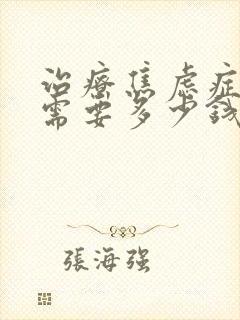 治療焦虑症
需要多少錢
張海强